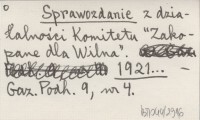 Sprawozdanie z dzia-
łalności Komitetu "Zako-
pane dla Wilna".
1921... –
Gaz. Podh. 9, nr 4.